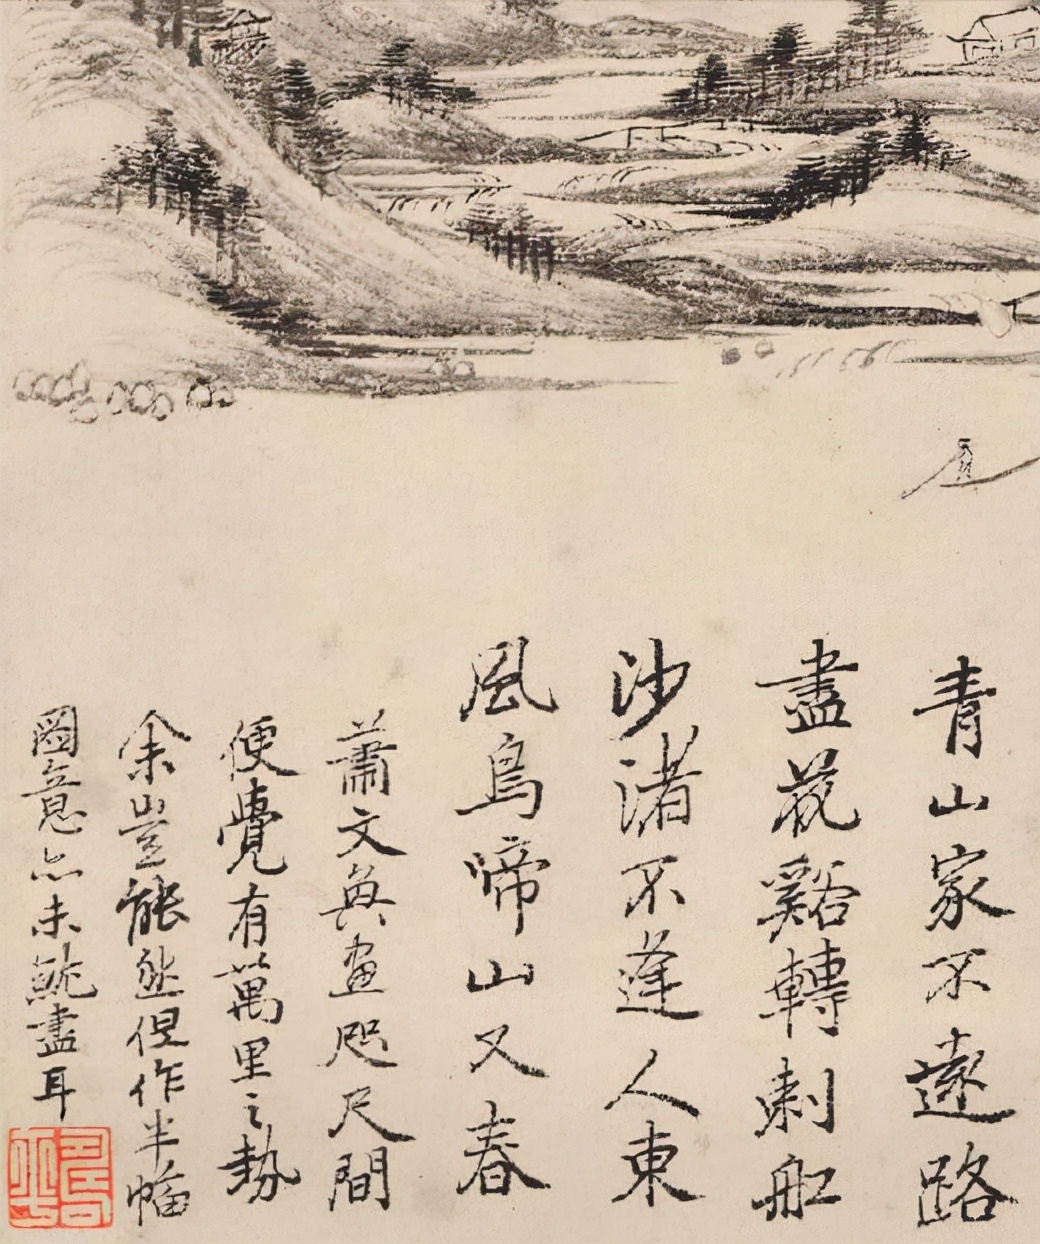 青山家不遠路
盡花谿轉刺舡
沙渚不逢人東
風鳥啼山又春
蕭文奐畫咫尺間
便覺有萬里之勢
余豈能然但作半幅
圖意亦未盡耳